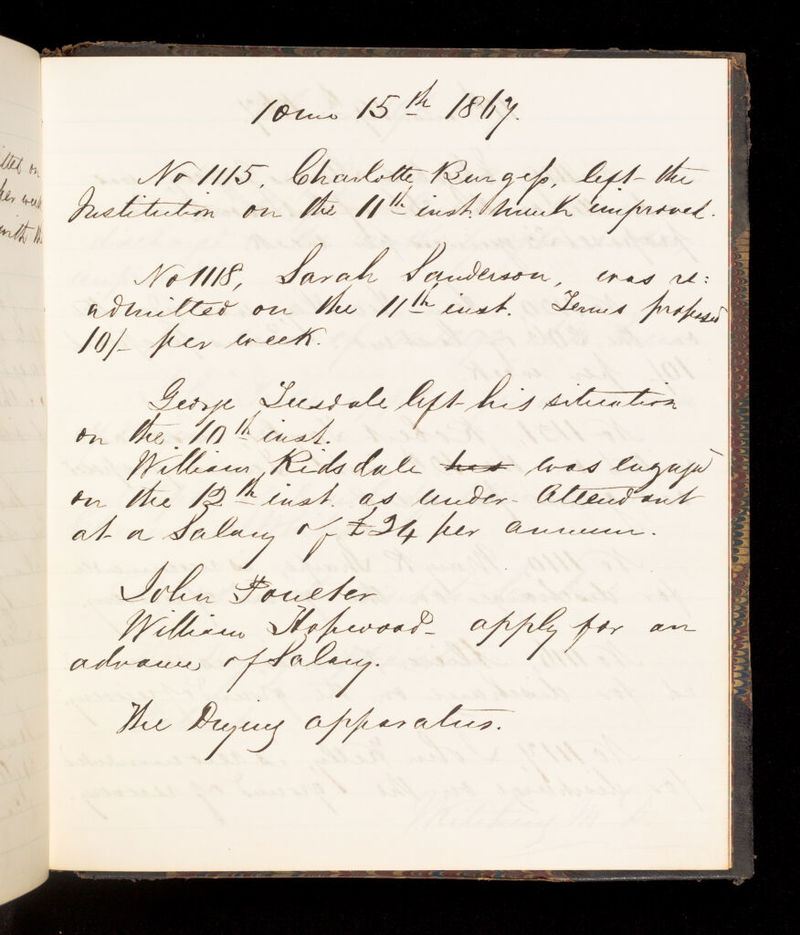 10mo 15th 1867.
No 1115, Charlotte Burgess, left the
Institution on the 11th inst. much improved.
No 1118, Sarah Sanderson, was re:
admitted on the 11th inst. Terms proposed
10/- per week.
George Teesdale left his situation
on the 10th inst.
William Kidsdale has was engaged
on the 12th inst. as under Attendant
at a Salary of £24 per annum.
John Poulter
William Hopwood - apply for an
advance of Salary.
The Drying apparatus.